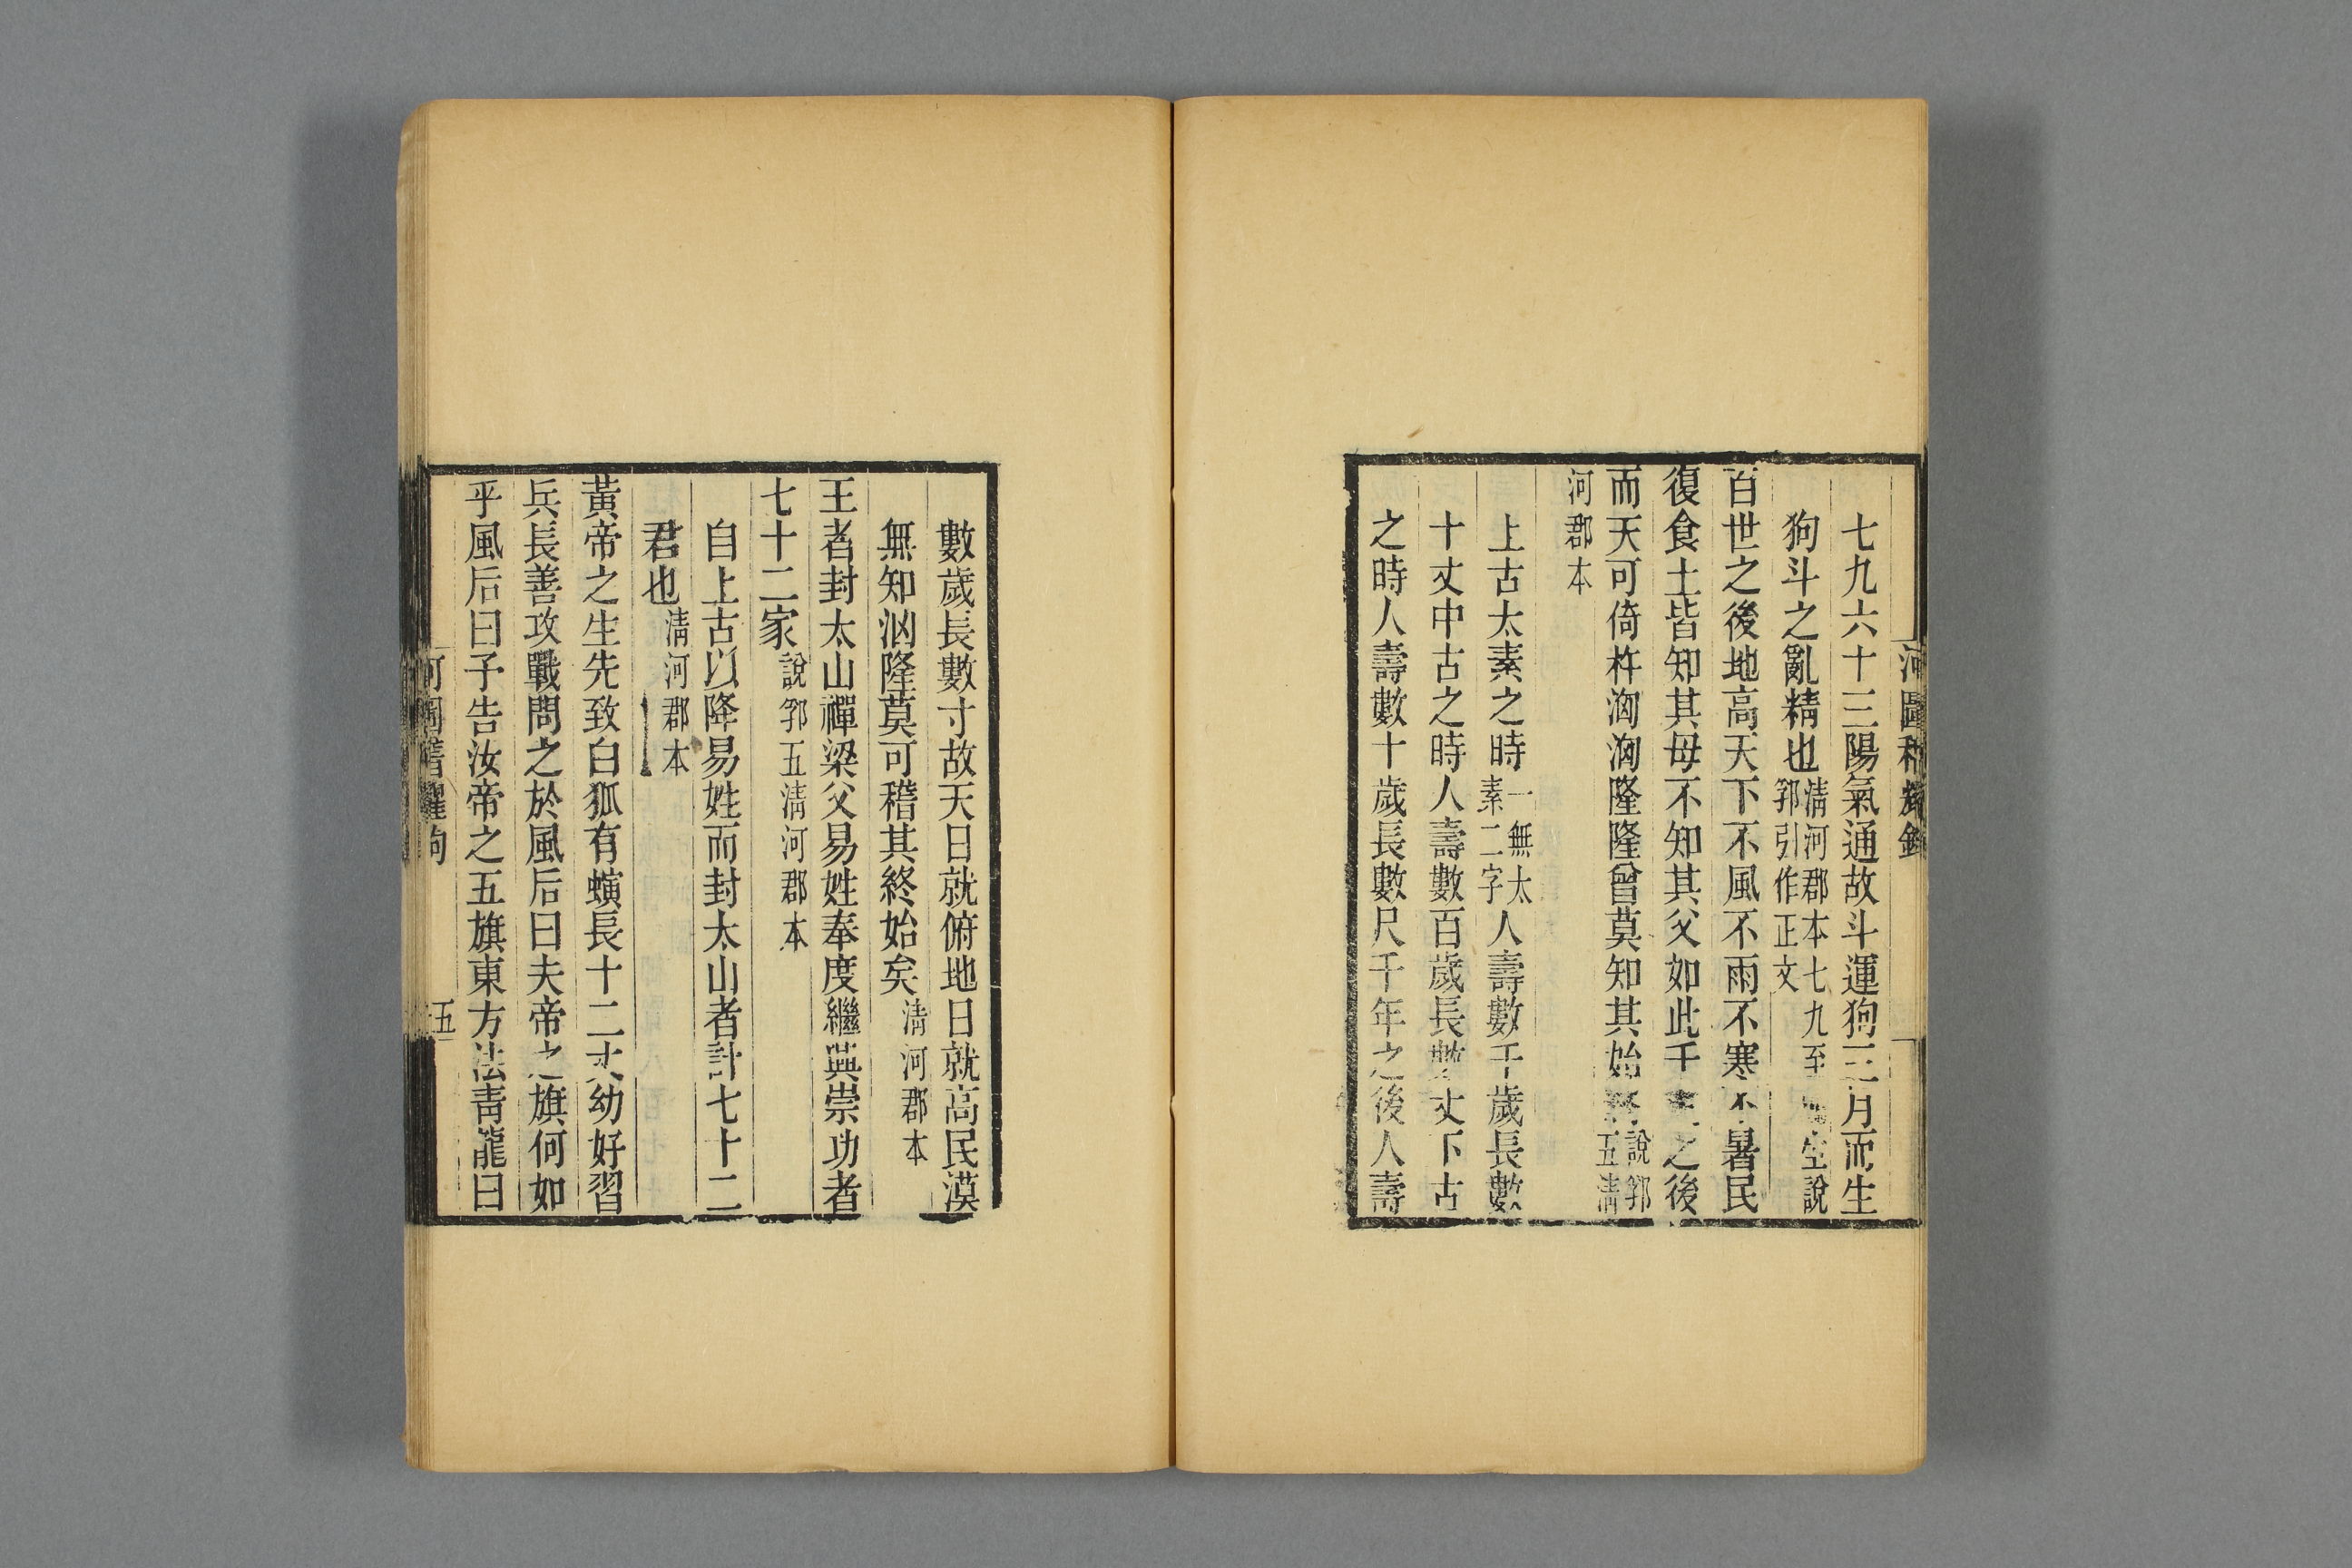 七九六十三陽氣通故斗運狗三月而生
狗斗之亂精也清河郡本七九至生說郛引作正文
百世之後地高天下不風不雨不寒不暑民
復食土皆知其母不知其父如此千之後
而天可倚杵洶洶隆隆曾莫知其始說郛五清
河郡本
上古太素之時一無太素二字人壽數千歲長數
十丈中古之時人壽數百歲長數丈下古
之時人壽數十歲長數尺千年之後人壽
數歲長數寸故天日就俯地日就高民漠
無知汹隆莫可稽其終始矣清河郡本
王者封太山禪梁父易姓奉度繼興崇功者
七十二家說郛五清河郡本
自上古以降易姓而封太山者計七十二
君也清河郡本
黃帝之生先致白狐有螾長十二丈幼好習
兵長善攻戰問之於風后曰夫帝之旗何如
乎風后曰子告汝帝之五旗東方法青龍曰
五